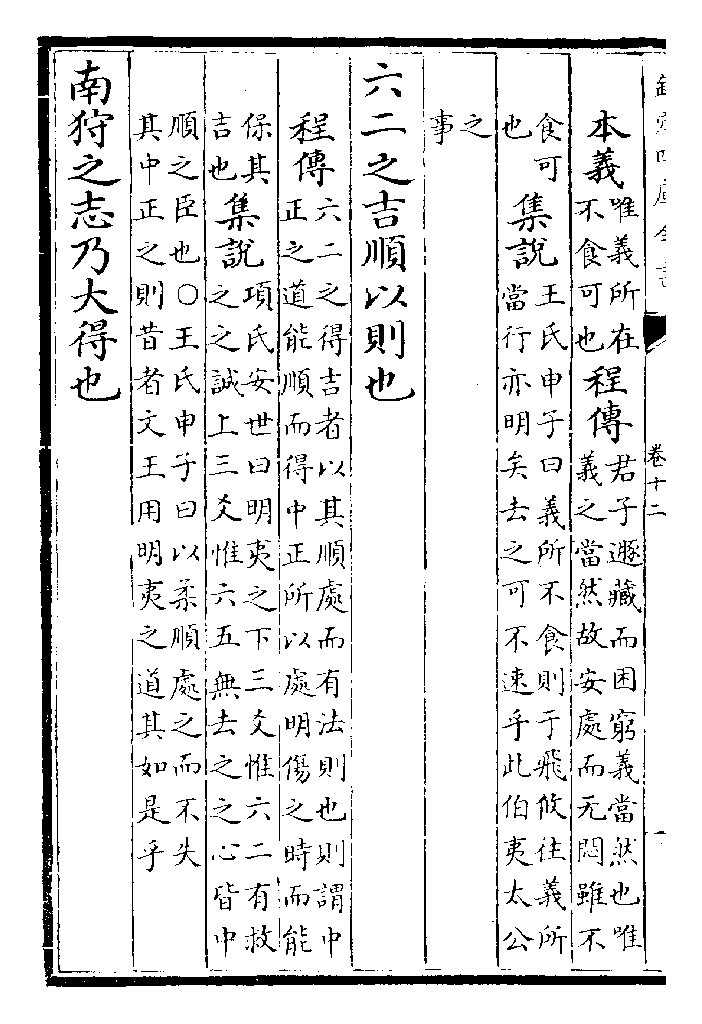 欽定四庫全書
卷十二
本義唯義所在
不食可也
程傳君子遯藏而困窮義當然也唯
義之當然故安處而无悶雖不
食可
也
集說王氏申子曰義所不食則于飛攸往義所
當行亦明矣去之可不速乎此伯夷太公
之
事
六二之吉順以則也
程傳六二之得吉者以其順處而有法則也則謂中
正之道能順而得中正所以處明傷之時而能
保其
吉也
集說項氏安世曰明夷之下三爻惟六二有救
之之誠上三爻惟六五無去之之心皆中
順之臣也○王氏申子曰以柔順處之而不失
其中正之則昔者文王用明夷之道其如是乎
南狩之志乃大得也